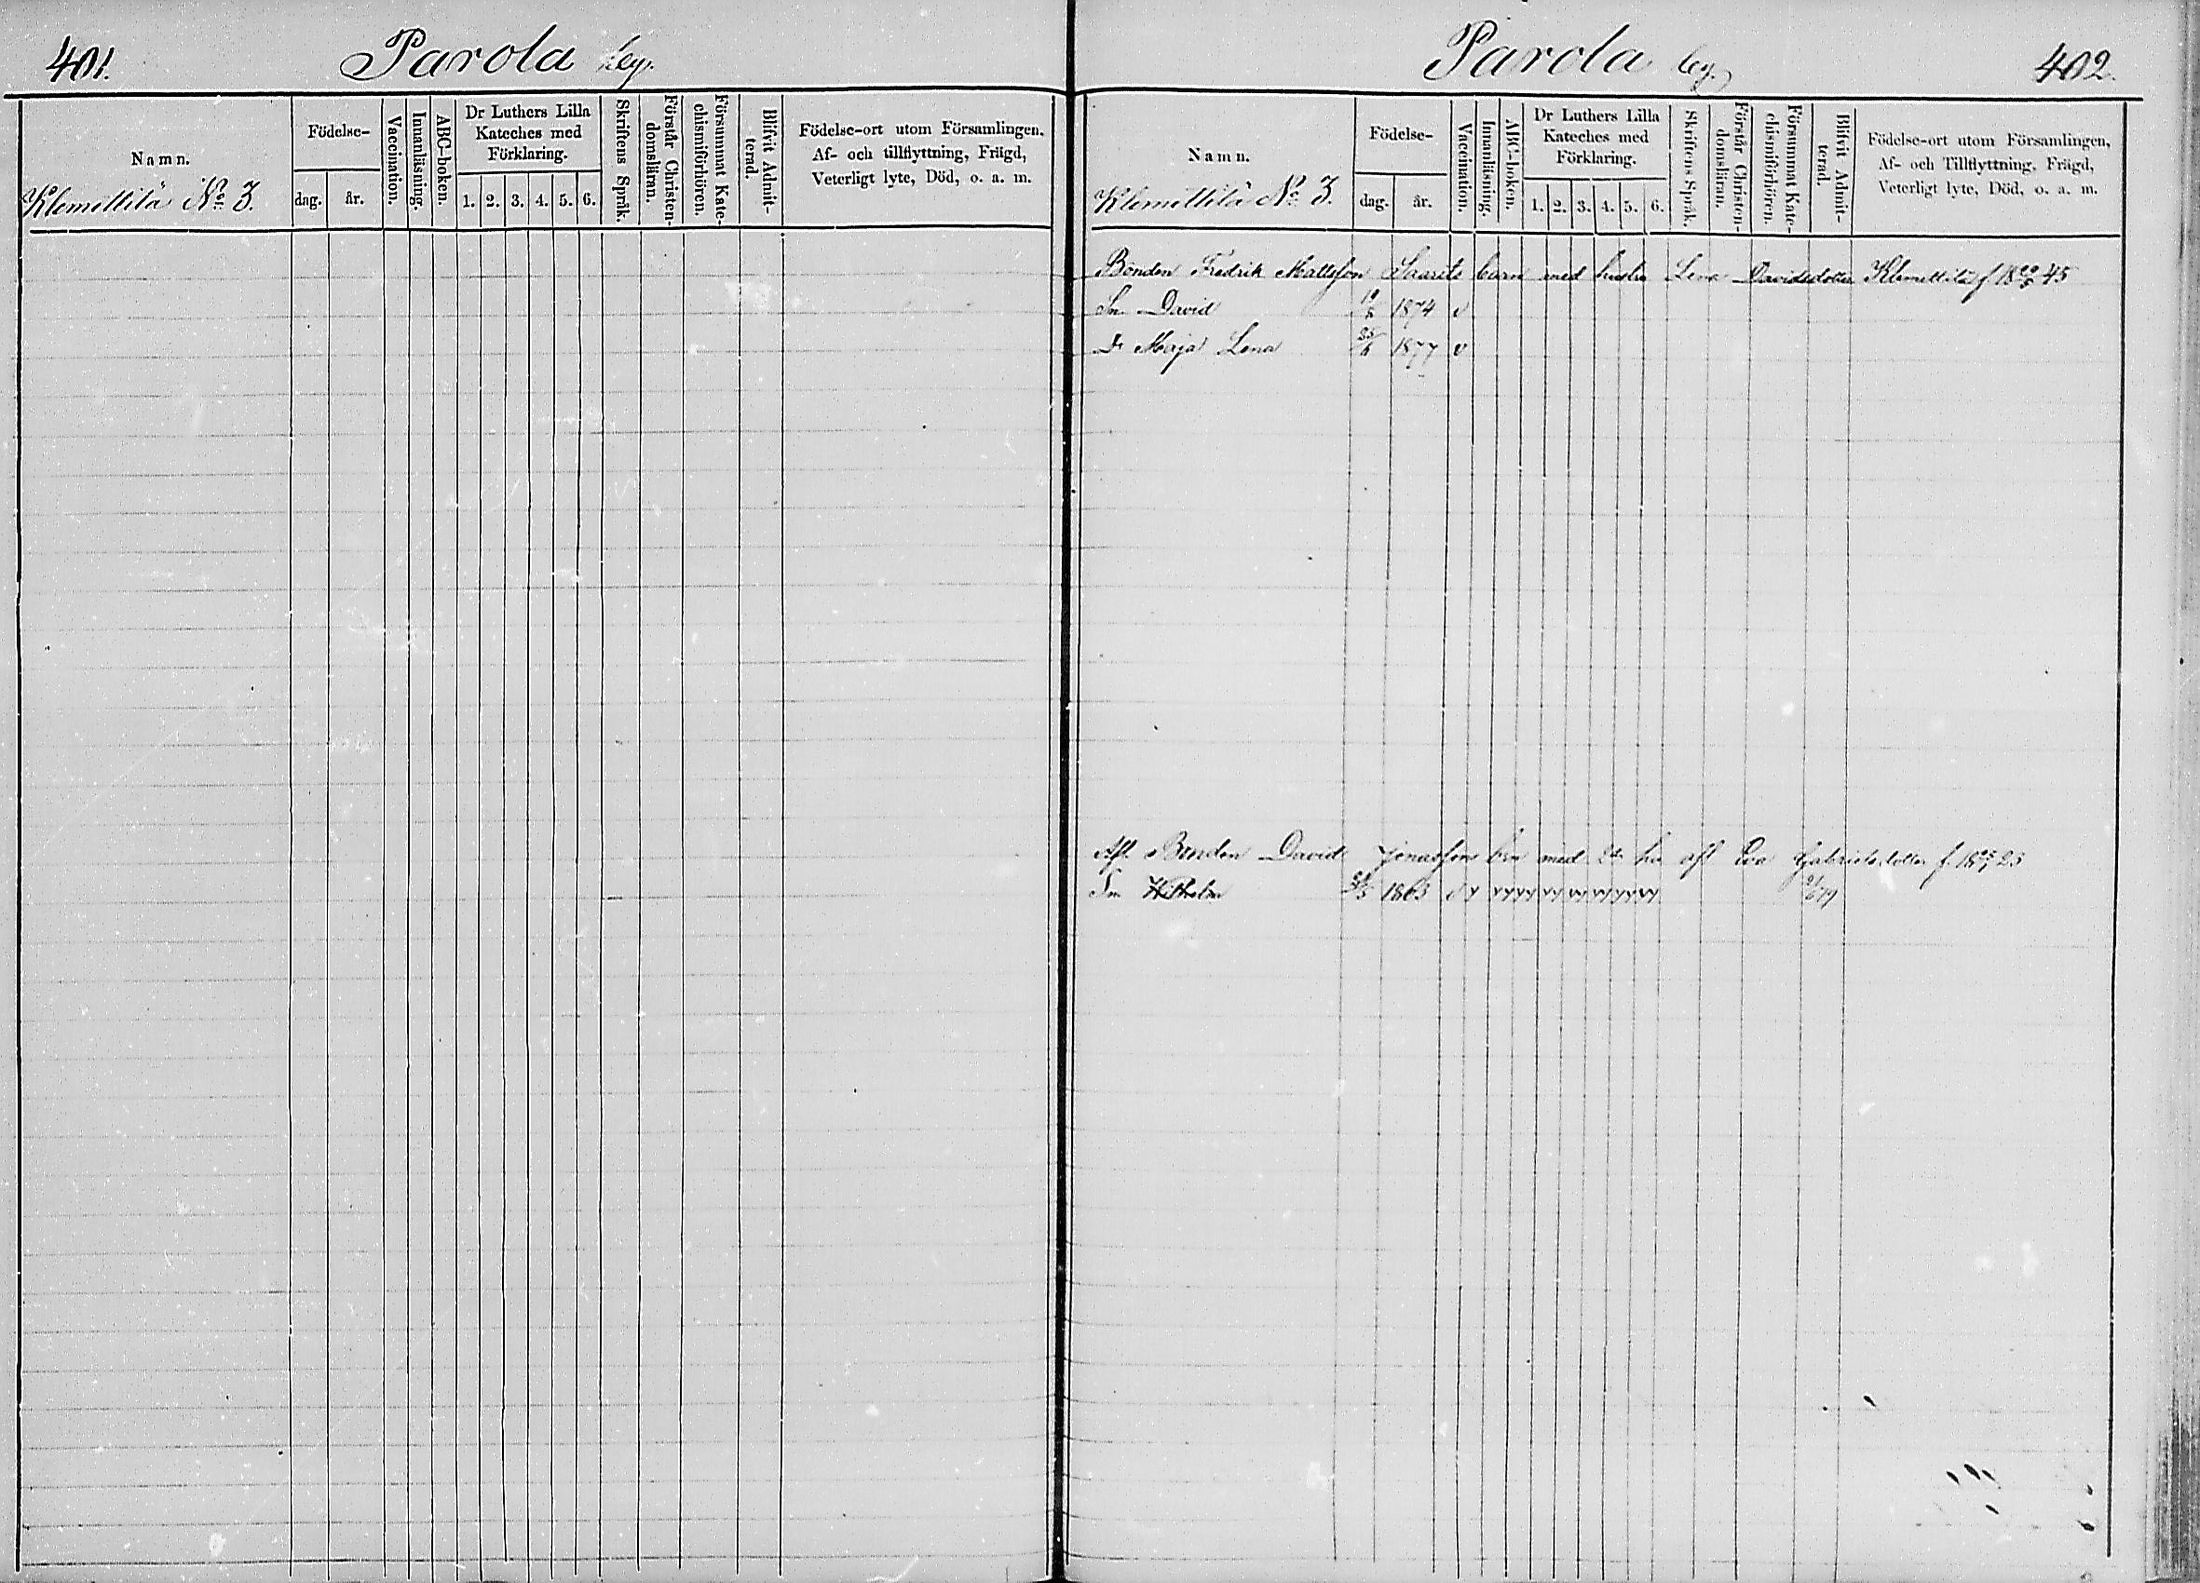 401.
Parola by.
Namn.
Klemettilä No 3.
Födelse-
dag.
år.
Vaccination.
Innanläsning.
ABC-boken.
Dr Luthers Lilla
Kateches med
Förklaring.
1. 2. 3. 4. 5. 6.
Skriftens Språk.
Förstår Christen-
domsläran.
Försummat Kate-
chismiförhören.
Blifvit Admit-
terad.
Födelse-ort utom Församlingen,
Af- och tillflyttning, Frägd,
Veterligt lyte, Död, o. a. m.
Parola by.
402.
Namn.
Klemettilä No 3.
Födelse-
dag.
år.
Vaccination.
Innanläsning.
ABC-boken.
Dr Luthers Lilla
Kateches med
Förklaring.
1. 2. 3. 4. 5. 6.
Skriftens Språk.
Förstår Christen-
domsläran.
Försummat Kate-
chismiförhören.
Blifvit Admit-
terad.
Födelse-ort utom Församlingen,
Af- och Tillflyttning, Frägd,
Veterligt lyte, Död, o. a. m.
Bonden Fredrik Mattsson Saarits barn med hustru Lena Davidsdotter Klemettilä f. 45
Sn David 1874 v
Dr Maja Lena 1877 v
Afl. Bonden David Jonasson bn med hu afl Eva Gabrielsdotter f. 23
Sn Wilhelm 1863